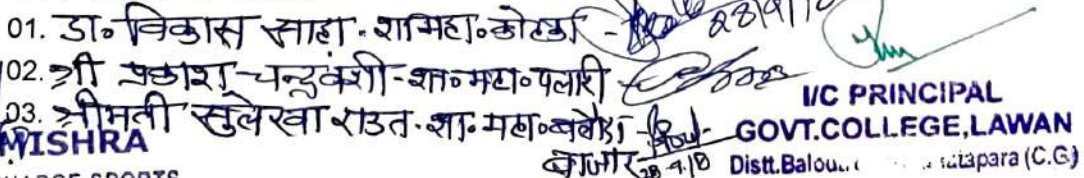 01. डा० विकास साहा - शा० महा० कोटवा - 28/9/18
02. श्री प्रकाश चन्द्रवंशी - शा० महा० पलारी
03. श्रीमती सुलेखा राउत - शा. महा०
बाजार 28.9.18
MISHRA
I/C PRINCIPAL
GOVT.COLLEGE,LAWAN
Distt.Balou... apara (C.G)